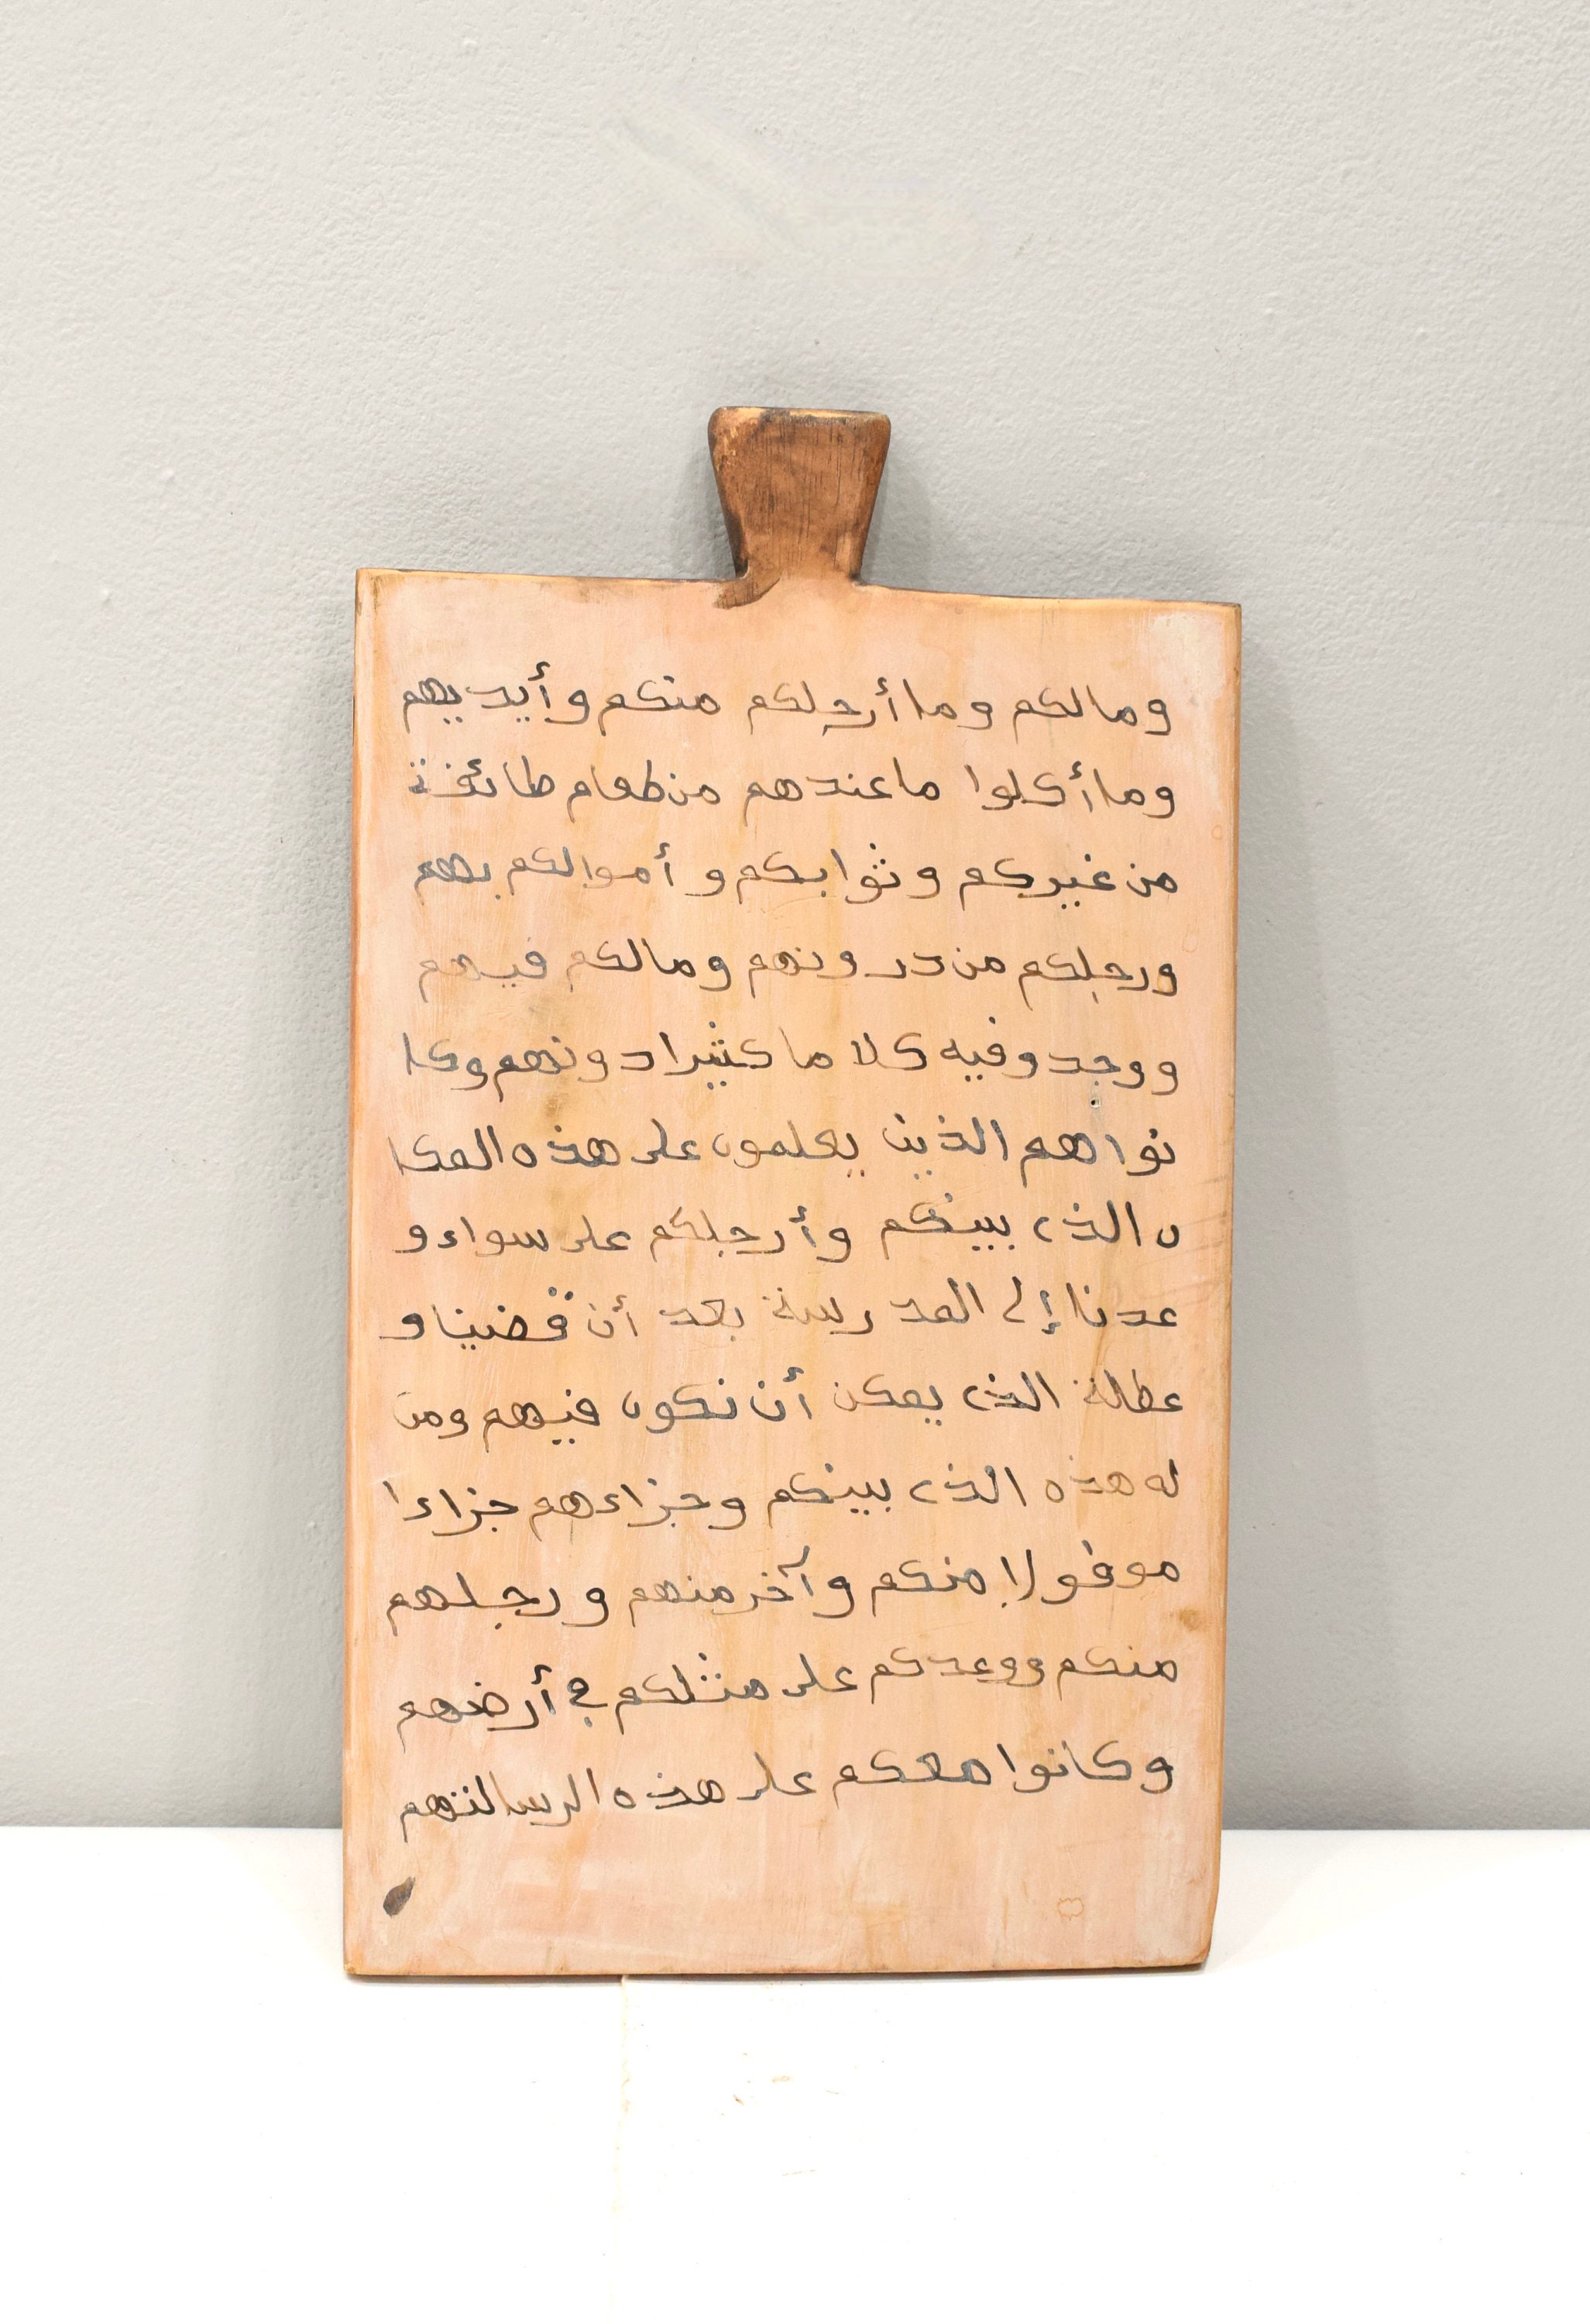 ومالكم وما أرجلكم منكم وأيديهم
وما أكلوا ما عندهم من طعام طائفة
من غيركم وثوابكم وأموالكم بهم
ورجلكم من درونهم ومالكم فيهم
ووجد وفيه كلا ما كثيرا دونهم وكا
نوا هم الذين يعلمون على هذه المكا
ن الذي بينكم وأرجلكم على سواء و
عدنا إلى المدرسة بعد أن قضينا و
عطلة الذي يمكن أن نكون فيهم ومن
له هذه الذي بينكم وجزاءهم جزاءا
موفورا منكم وآخر منهم ورجلهم
منكم ووعدكم على مثلكم في أرضهم
وكانوا معكم على هذه الرسالتهم